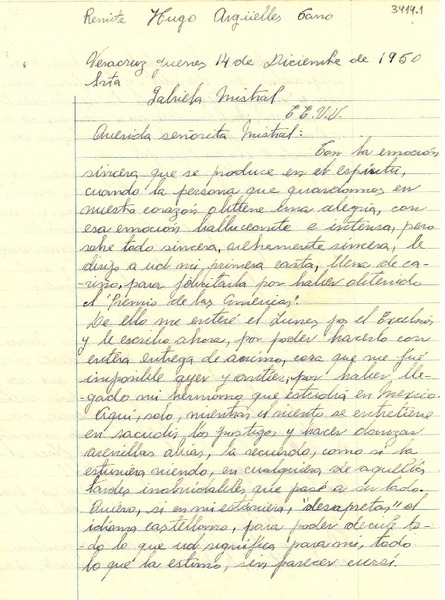 Remite Hugo Argüelles Cano
3919.1
Veracruz jueves 14 de Diciembre de 1950
Srta
Gabriela Mistral
E E. U.U.
Querida señorita Mistral:
Con la emoción
sincera que se produce en el espíritu,
cuando la persona que guardamos en
nuestro corazón obtiene una alegría, con
esa emoción hallucinante e intensa, pero
sobre todo sincera, vehemente sincera, le
dirijo a ud mi primera carta, llena de ca-
riño, para felicitarla por haber obtenido
el "Premio de las Américas".
De ello me enteré el Lunes por el Excelsior
y le escribo ahora, por poder hacerlo con
entera entrega de ánimo, cosa que me fué
imposible ayer y antier, por haber lle-
gado mi hermano que estudia en México.
Aquí, solo, mientras el viento se entretiene
en sacudir los postigos y hacer danzar
arenillas albas, la recuerdo, como si la
estuviera viendo, en cualquiera de aquellas
tardes inolvidables que pasé a su lado.
Quiero, si en mi estuviera, "desapretar" el
idioma castellano, para poder decirle to-
do lo que ud significa para mi, todo
lo que la estimo, sin parecer cursi.